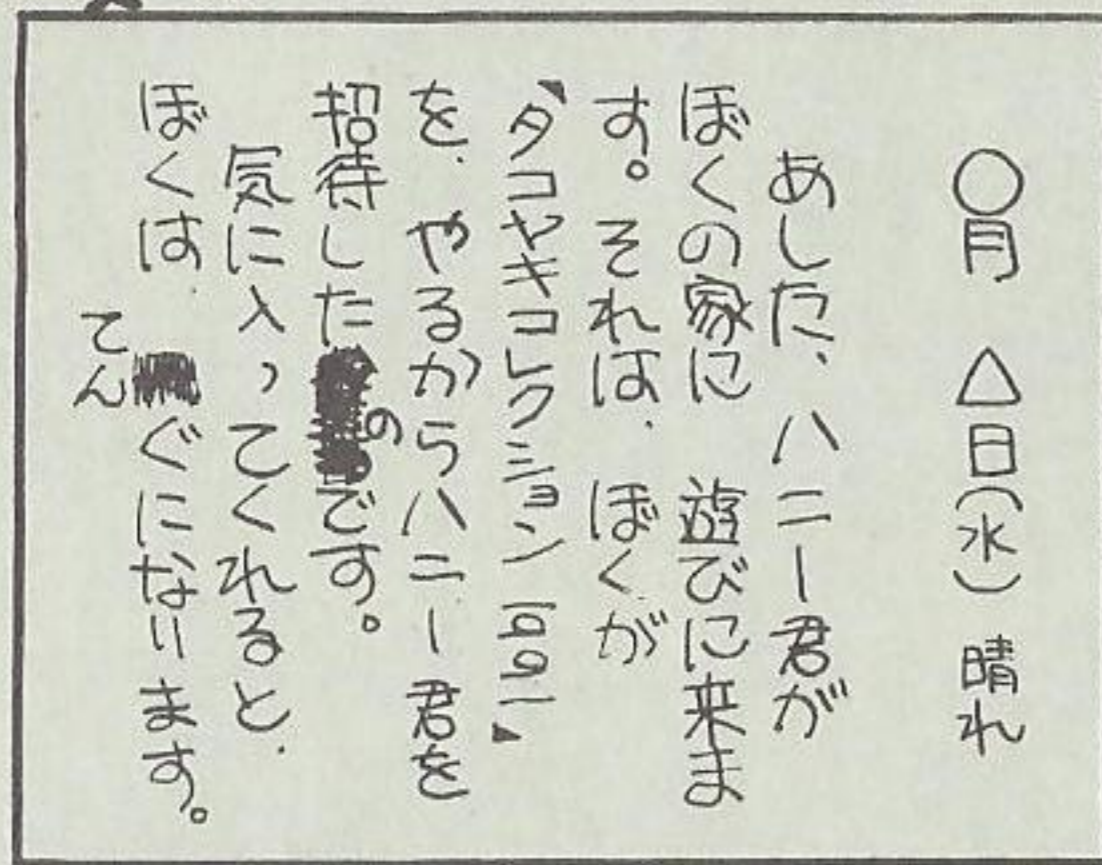 ○月 △日(水) 晴れ
あした、ハニー君が
ぼくの家に 遊びに来ま
す。それは、ぼくが
"タコヤキコレクション1991"
を、やるからハニー君を
招待したのです。
気に入ってくれると、
ぼくは、てんぐになります。